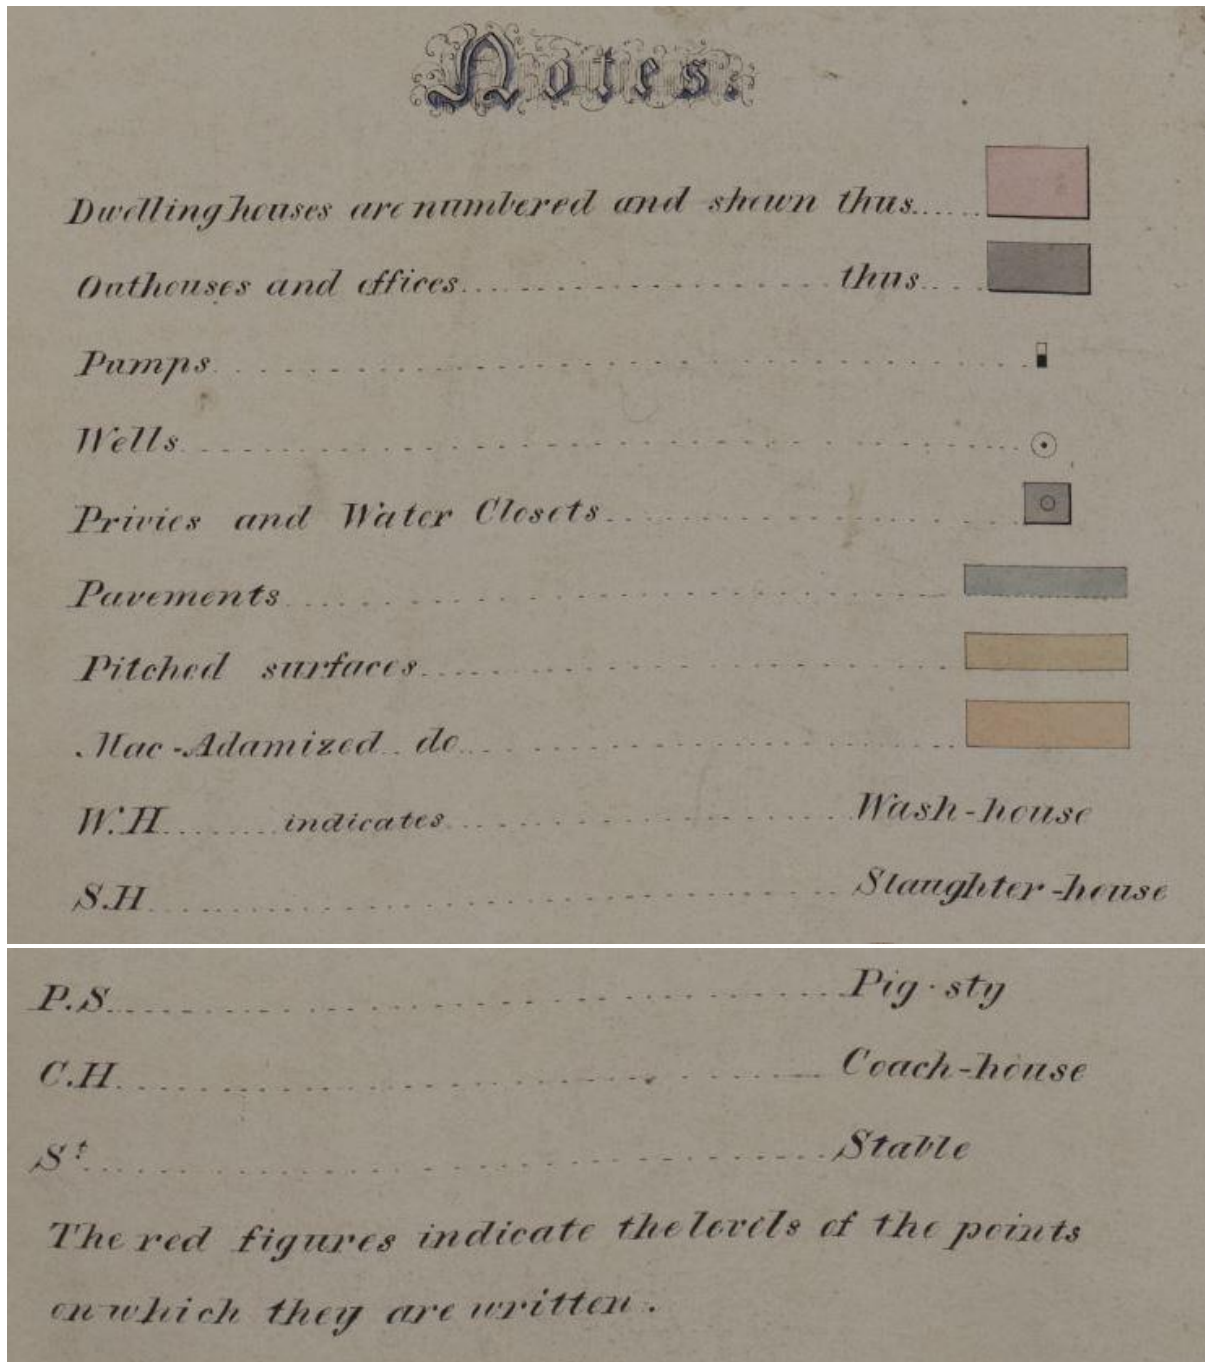 Notes.
Dwelling houses are numbered and shewn thus
Outhouses and offices thus
Pumps
Wells
Privies and Water Closets
Pavements
Pitched surfaces
Mac-Adamized do
W.H indicates Wash-house
S.H Slaughter-house
P.S Pig-sty
C.H Coach-house
St Stable
The red figures indicate the levels of the points
on which they are written.